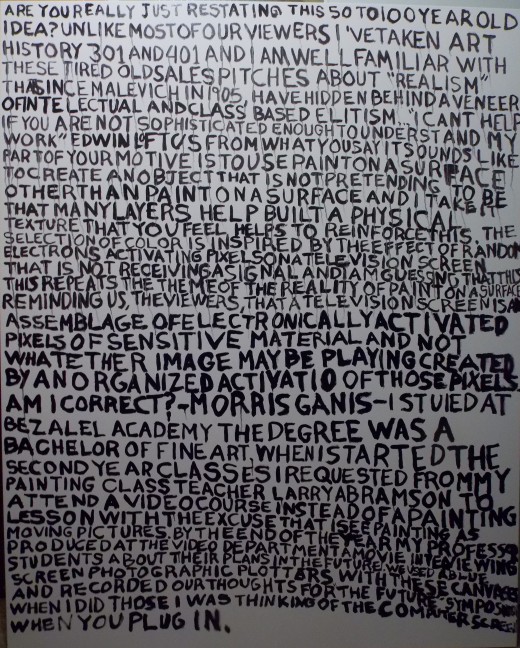 ARE YOU REALLY JUST RESTATING THIS 50 TO 100 YEAR OLD
IDEA? UNLIKE MOST OF OUR VIEWERS I'VE TAKEN ART
HISTORY 301 AND 401 AND I AM WELL FAMILIAR WITH
THESE TIRED OLD SALES PITCHES ABOUT "REALISM"
THA SINCE MALEVICH IN 1905, HAVE HIDDEN BEHIND A VENEER
OF INTELECTUAL AND CLASS BASED ELITISM. "I CANT HELP
IF YOU ARE NOT SOPHISTICATED ENOUGH TO UNDERSTAND MY
WORK" EDWIN LOFTUS FROM WHAT YOU SAY IT SOUNDS LIKE
PART OF YOUR MOTIVE IS TO USE PAINT ON A SURFACE
TO CREATE AN OBJECT THAT IS NOT PRETENDING TO BE
OTHER THAN PAINT ON A SURFACE AND I TAKE IT
THAT MANY LAYERS HELP BUILT A PHYSICAL
TEXTURE THAT YOU FEEL HELPS TO REINFORCE THIS. THE
SELECTION OF COLOR IS INSPIRED BY THE EFFECT OF RANDOM
ELECTRONS ACTIVATING PIXELS ON A TELEVISION SCREEN
THAT IS NOT RECEIVING A SIGNAL AND I AM GUESSING THAT THIS
THIS REPEATS THE THEME OF THE REALITY OF PAINT ON A SURFACE
REMINDING US, THE VIEWERS, THAT A TELEVISION SCREEN IS AN
ASSEMBLAGE OF ELECTRONICALLY ACTIVATED
PIXELS OF SENSITIVE MATERIAL AND NOT
WHATETHER IMAGE MAY BE PLAYING CREATED
BY AN ORGANIZED ACTIVATIO OF THOSE PIXELS.
AM I CORRECT? -MORRIS GANIS- I STUIED AT
BEZALEL ACADEMY THE DEGREE WAS A
BACHELOR OF FINE ART. WHEN I STARTED THE
SECOND YEAR CLASSES I REQUESTED FROM MY
PAINTING CLASS TEACHER LARRY ABRAMSON TO
ATTEND A VIDEO COURSE INSTEAD OF A PAINTING
LESSON WITH THE EXCUSE THAT I SEE PAINTING AS
MOVING PICTURES. BY THE END OF THE YEAR MY PROFESSOR
PRODUCED AT THE VIDEO DEPARTMENT A MOVIE INTERVIEWING
STUDENTS ABOUT THEIR PLANS IN THE FUTURE. WE USED A BLUE
SCREEN PHOTOGRAPHIC PLOTTERS WITH THESE CANVASES
AND RECORDED OUR THOUGHTS FOR THE FUTURE-SYMPOSIUM
WHEN I DID THOSE I WAS THINKING OF THE COMPUTER SCREEN
WHEN YOU PLUG IN.